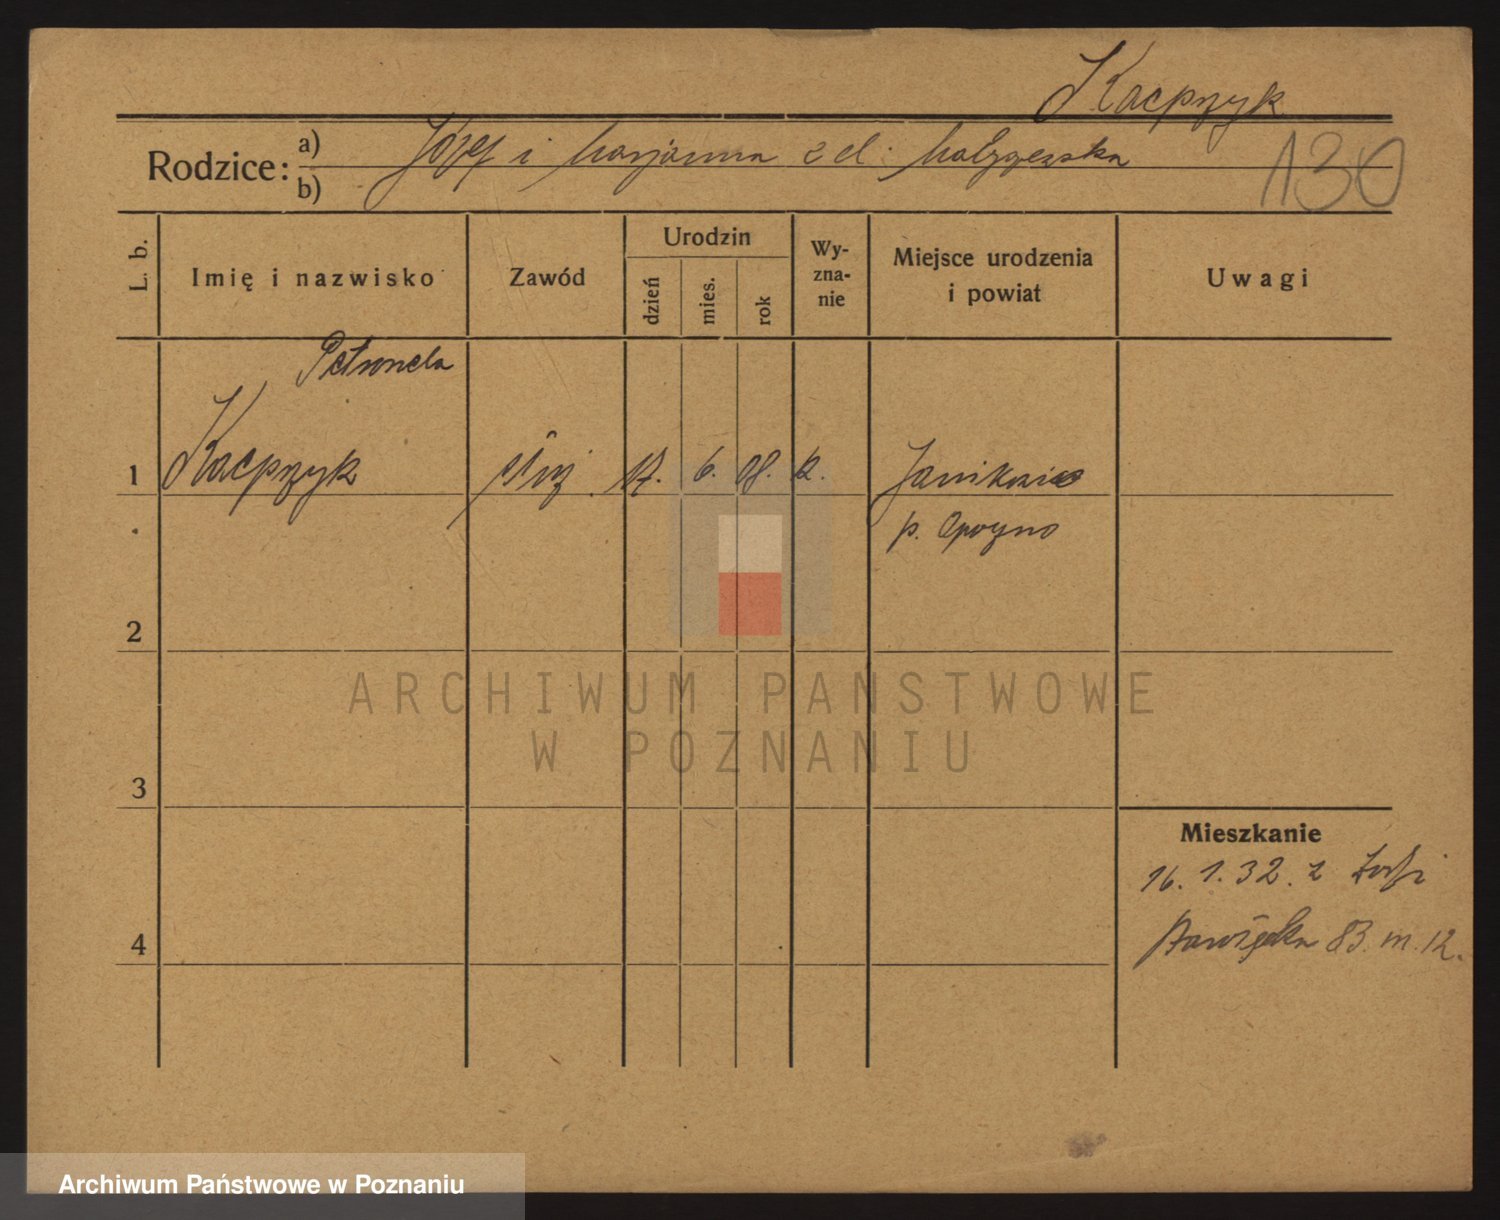 Kacprzyk
Rodzice: a) Józef i Marjanna z d. Małyszewska
b)
130
L. b.
Imię i nazwisko
Zawód
Urodzin
dzień
mies.
rok
Wy-
zna-
nie
Miejsce urodzenia
i powiat
Uwagi
Petronela
1 Kacprzyk służ. 17. 6. 08. k. Janikowice
p. Opoczno
2
3
Mieszkanie
16. 1. 32. z Łodzi
4
83. m. 12.
ARCHIWUM PAŃSTWOWE
W POZNANIU
Archiwum Państwowe w Poznaniu